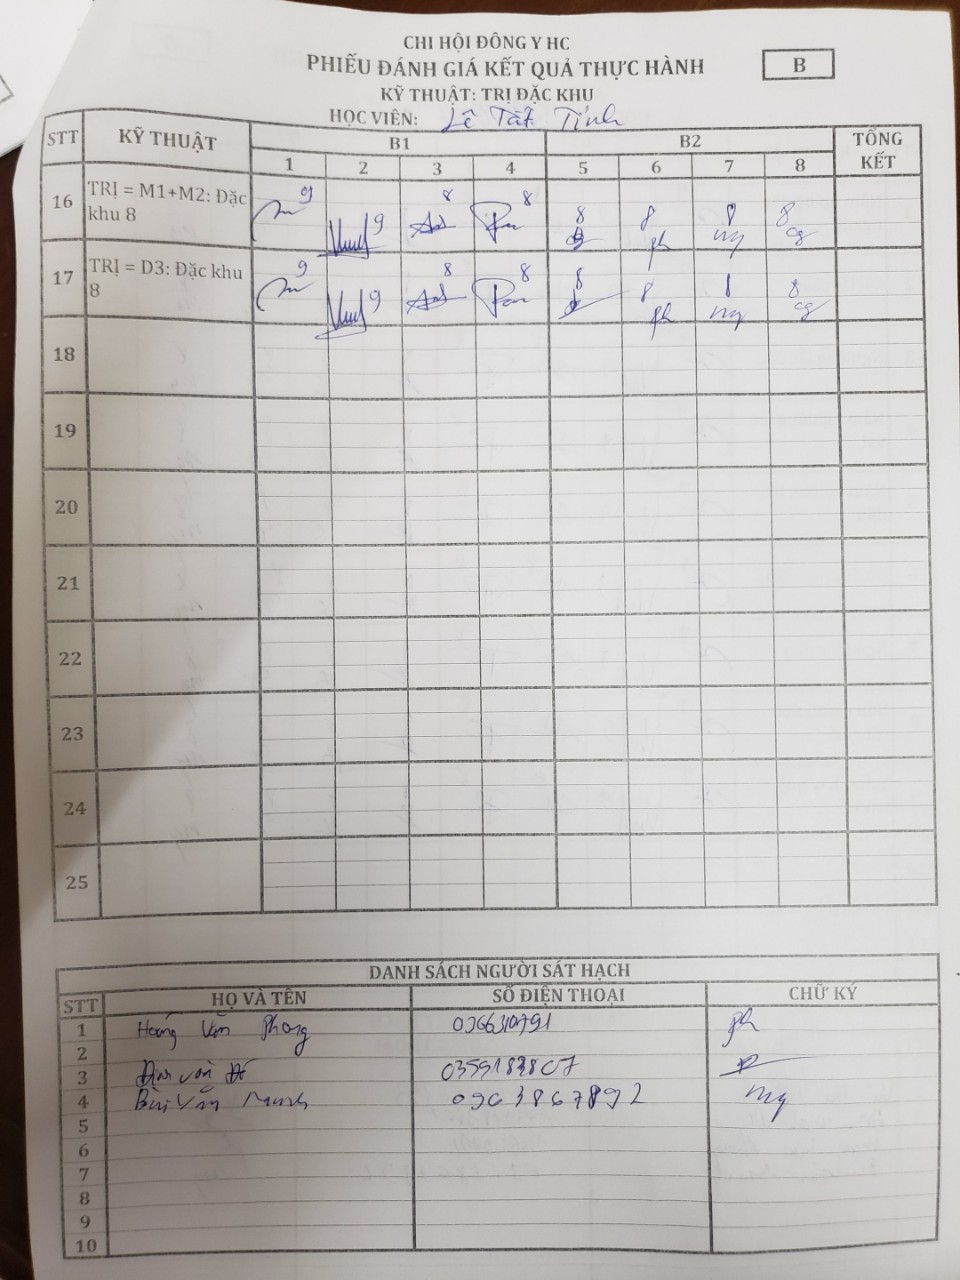 CHI HỘI ĐÔNG Y HC
PHIẾU ĐÁNH GIÁ KẾT QUẢ THỰC HÀNH
B
KỸ THUẬT: TRỊ ĐẶC KHU
HỌC VIÊN: Lê Tất Tính
STT KỸ THUẬT B1 B2 TỔNG KẾT
1 2 3 4 5 6 7 8
16 TRỊ = M1+M2: Đặc khu 8 9 9 8 8 8 8 8 8
17 TRỊ = D3: Đặc khu 8 9 9 8 8 8 8 8 8
18
19
20
21
22
23
24
25
DANH SÁCH NGƯỜI SÁT HẠCH
STT HỌ VÀ TÊN SỐ ĐIỆN THOẠI CHỮ KÝ
1 Hoàng Văn Phong
2
3 Đinh văn
4 Bùi Văn 0963867892
5
6
7
8
9
10